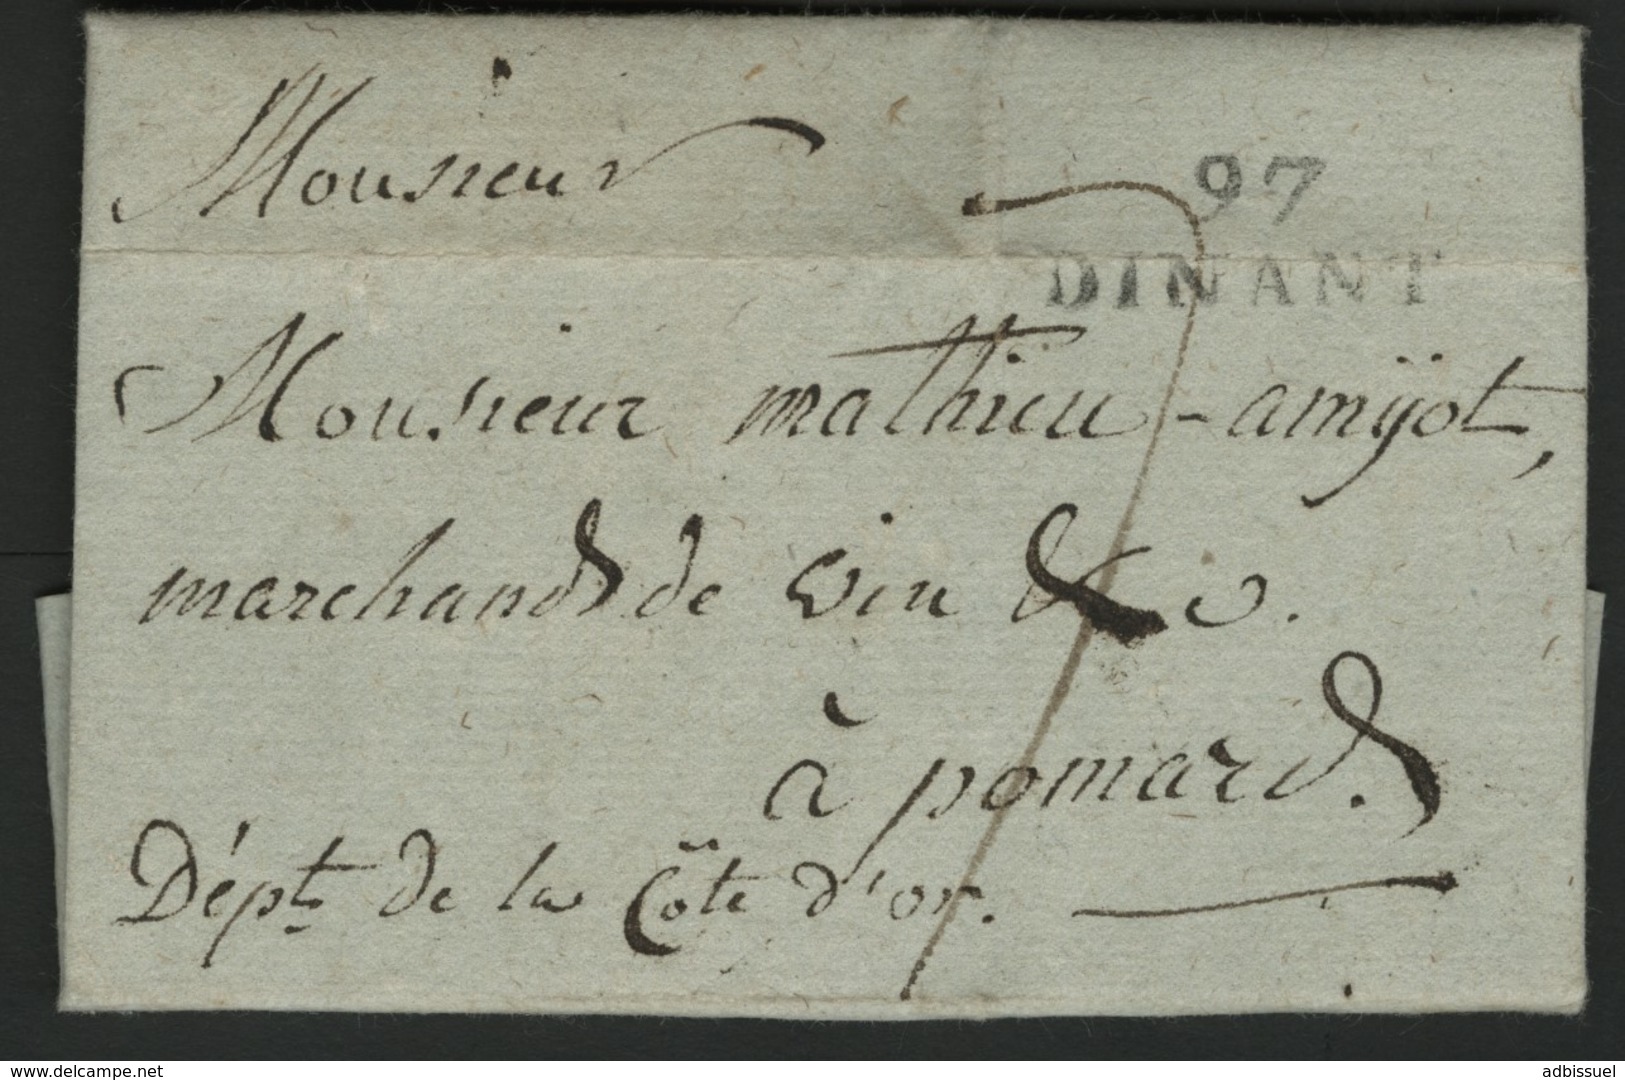 Monsieur
97
DINANT
Monsieur mathieu-amÿot,
marchand de vin &c.
à pomard.
Dépt. de la Côte d'or.
delcampe.net
adbissuel